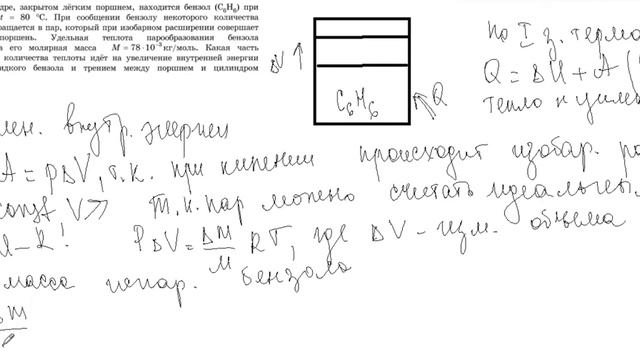 дре, закрытом лёгким поршнем, находится бензол (C₆H₆) при
t = 80 °C. При сообщении бензолу некоторого количества
ращается в пар, который при изобарном расширении совершает
поршень. Удельная теплота парообразования бензола
а его молярная масса M = 78·10⁻³ кг/моль. Какая часть
количества теплоты идёт на увеличение внутренней энергии
идкого бензола и трением между поршнем и цилиндром
ΔV ↑
C₆H₆
Q
по I з. термо
Q = ΔU + A
тепло
внутр. энергии
A = pΔV, т.к. при кипении происходит изобар. ра
const V >> Т.к. пар можно считать идеальны.
M–К! PΔV = Δm/M RT, где ΔV – изм. объёма
масса испар. бензола
m